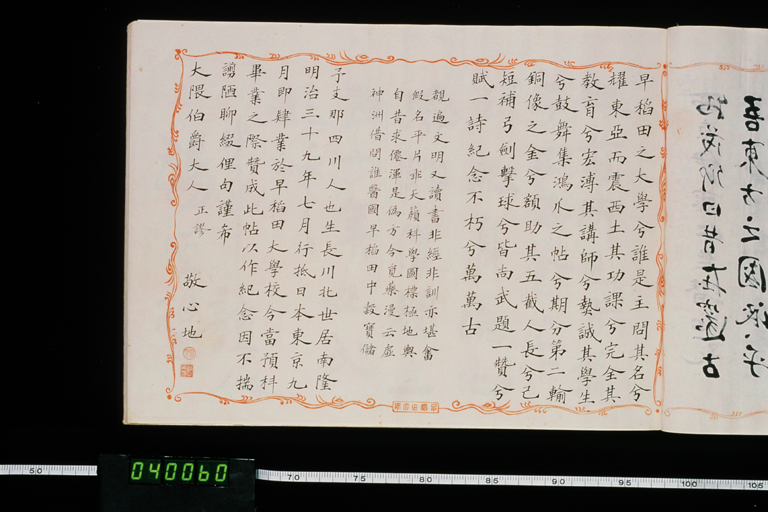 早稻田之大學兮誰是主問其名兮
耀東亞而震西土其功課兮完全其
教育兮宏溥其講師兮熱誠其學生
兮鼓舞集鴻爪之帖兮期分第二輸
銅像之金兮額助其五截人長兮己
短補弓劍擊球兮皆尚武題一贊兮
賦一詩紀念不朽兮萬萬古
觀過文明又讀書非經非訓亦堪畬
假名平片非天籟科學圖標極地輿
自昔求僊渾是偽方今覓藥漫云虛
神洲借問誰醫國早稻田中設寶儲
予支那四川人也生長川北世居南隆
明治三十九年七月行抵日本東京九
月即肄業於早稻田大學校今當預科
畢業之際贊成此帖以作紀念因不揣
謭陋聊綴俚句謹希
大隈伯爵大人 正謬
敬心地
040060
50
70
75
80
85
90
95
100
105